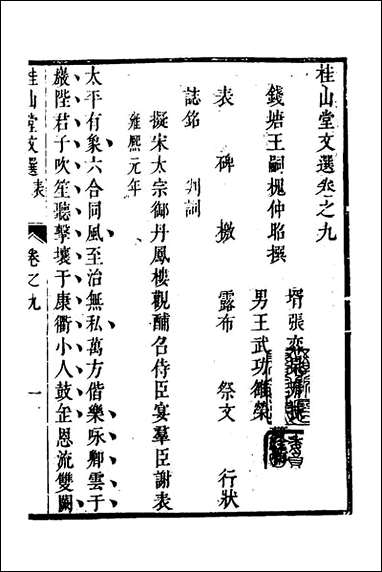 桂山堂文選卷之九
錢塘王嗣槐仲昭撰
壻張奕
男王武功維榮
表 碑 檄 露布 祭文 行狀
誌銘 判詞
擬宋太宗御丹鳳樓觀酺召侍臣宴羣臣謝表
雍熙元年
太平有象六合同風至治無私萬方偕樂咏卿雲于
巖陛君子吹笙聽擊壤于康衢小人鼓缶恩流雙闕
桂山堂文選 表 卷之九 一